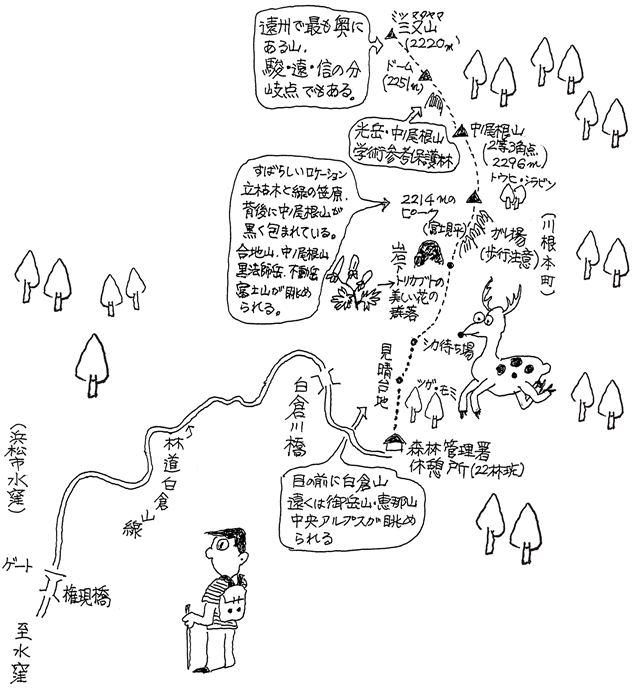 遠州で最も奥に
ある山.
駿・遠・信の分
岐点でもある。
ミツマタヤマ
三又山
(2220m)
ドーム
(2251m)
光岳・中ノ尾根山
学術参考保護林
中ノ尾根山
(2等3角点
2296m)
トウヒ・シラビソ
すばらしいロケーション
立枯木と緑の笹原.
背後に中ノ尾根山が
黒く包まれている。
合地山.中ノ尾根山
黒法師岳.不動岳
富士山が眺め
られる。
2214mの
ピーク
(富士見平)
ガレ場
(歩行注意)
(川根本町)
山岩下
トリカブトの
美しい花の
群落
シカ待ち場
見晴台地
ツガ・モミ
白倉川橋
森林管理署
休憩所(22林班)
目の前に白倉山
遠くは御岳山・恵那山
中央アルプスが眺め
られる
林道白倉山線
(浜松市水窪)
ゲート
権現橋
至水窪